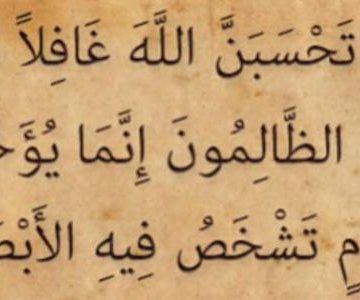 تَحْسَبَنَّ اللَّهَ غَافِلاً
الظَّالِمُونَ إِنَّمَا يُؤَخ
مٍ تَشْخَصُ فِيهِ الأَبْصَ